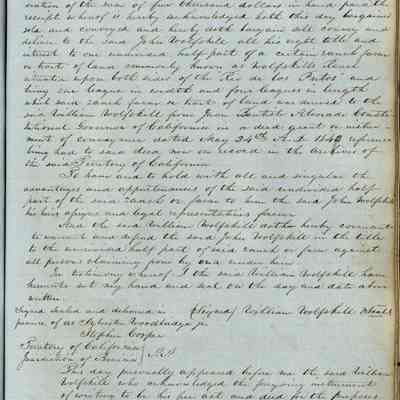 eration of the sum of five thousand dollars in hand paid the
receipt whereof is hereby acknowledged hath this day bargained
sold and conveyed and hereby doth bargain sell convey and
deliver to the said John Wolfskill all his right title and
interest to one undivided half part of a certain ranch farm
or tract of land commonly known as Wolfskills Ranch
situated upon both sides of the "Rio de los Putos" and
being one league in width and four leagues in length
which said ranch farm or tract of land was deeded to the
said William Wolfskill from Juan Bautista Alvarado Consti-
tutional Governor of California in a deed grant or instru-
ment of conveyance dated May 24th A.D. 1842 reference
being had to said deed now on record in the archives of
the said Territory of California
To have and to hold with all and singular the
advantages and appurtenances of the said undivided half
part of the said ranch or farm to him the said John Wolfskill
his heirs assigns and legal representatives forever
And the said William Wolfskill doth hereby covenant
to warrant and defend the said John Wolfskill in the title
to the undivided half part of said ranch or farm against
all persons claiming from by or under him
In testimony whereof I the said William Wolfskill have
hereunto set my hand and seal on the day and date above
written.
Signed sealed and delivered in (Signed) William Wolfskill (Seal)
presence of us Sylvester Woodbridge jr
Stephen Cooper
Territory of California
Jurisdiction of Benicia } S.S.
This day personally appeared before me the said William
Wolfskill who acknowledged the foregoing instrument
of writing to be his free act and deed for the purposes